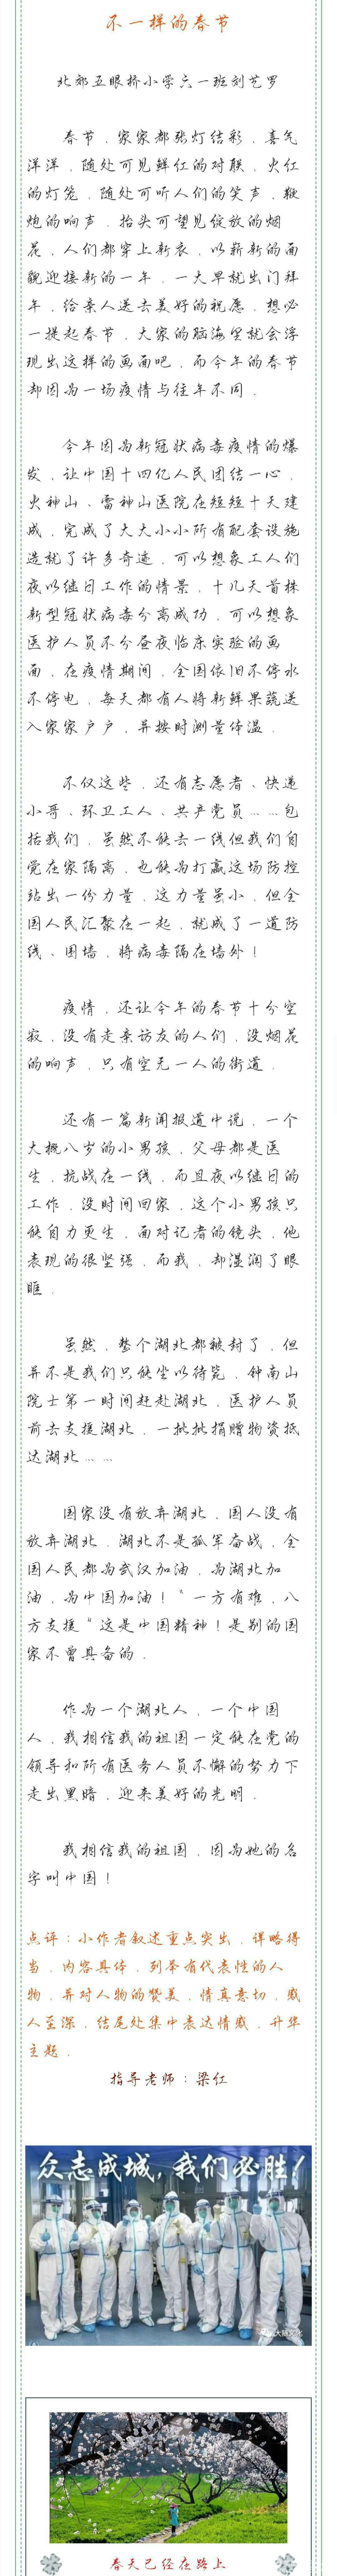 不一样的春节
北郊五眼桥小学六一班刘艺罗
春节，家家都张灯结彩，喜气
洋洋，随处可见鲜红的对联，火红
的灯笼，随处可听人们的笑声，鞭
炮的响声，抬头可望见绽放的烟
花，人们都穿上新衣，以崭新的面
貌迎接新的一年，一大早就出门拜
年，给亲人送去美好的祝愿，想必
一提起春节，大家的脑海里就会浮
现出这样的画面吧，而今年的春节
却因为一场疫情与往年不同．
今年因为新冠状病毒疫情的爆
发，让中国十四亿人民团结一心，
火神山、雷神山医院在短短十天建
成，完成了大大小小所有配套设施
造就了许多奇迹，可以想象工人们
夜以继日工作的情景，十几天首株
新型冠状病毒分离成功，可以想象
医护人员不分昼夜临床实验的画
面，在疫情期间，全国依旧不停水
不停电，每天都有人将新鲜果蔬送
入家家户户，并按时测量体温．
不仅这些，还有志愿者、快递
小哥、环卫工人、共产党员……包
括我们，虽然不能去一线但我们自
觉在家隔离，也能为打赢这场防控
站出一份力量，这力量虽小，但全
国人民汇聚在一起，就成了一道防
线、围墙，将病毒隔在墙外！
疫情，还让今年的春节十分空
寂，没有走亲访友的人们，没烟花
的响声，只有空无一人的街道．
还有一篇新闻报道中说，一个
大概八岁的小男孩，父母都是医
生，抗战在一线，而且夜以继日的
工作，没时间回家，这个小男孩只
能自力更生，面对记者的镜头，他
表现的很坚强，而我，却湿润了眼
眶。
虽然，整个湖北都被封了，但
并不是我们只能坐以待毙，钟南山
院士第一时间赶赴湖北，医护人员
前去支援湖北，一批批捐赠物资抵
达湖北……
国家没有放弃湖北，国人没有
放弃湖北，湖北不是孤军奋战，全
国人民都为武汉加油，为湖北加
油，为中国加油！“一方有难，八
方支援“这是中国精神！是别的国
家不曾具备的．
作为一个湖北人，一个中国
人，我相信我的祖国一定能在党的
领导和所有医务人员不懈的努力下
走出黑暗，迎来美好的光明．
我相信我的祖国，因为她的名
字叫中国！
点评：小作者叙述重点突出，详略得
当，内容具体，列举有代表性的人
物，并对人物的赞美，情真意切，感
人至深，结尾处集中表达情感，升华
主题．
指导老师：梁红
众志成城，我们必胜！
春天已经在路上